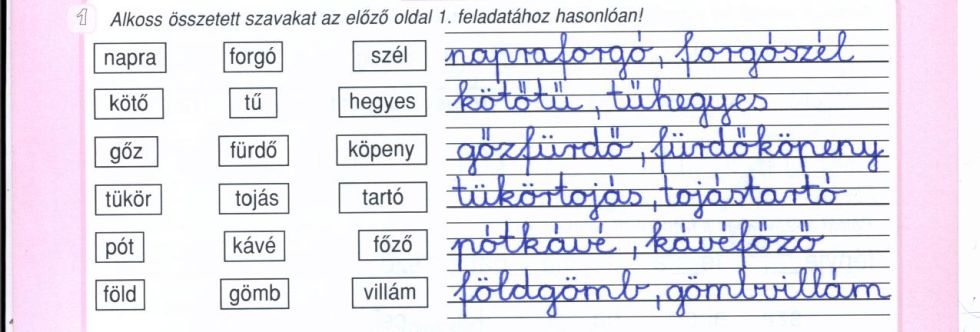 1 Alkoss összetett szavakat az előző oldal 1. feladatához hasonlóan!
napra forgó szél napraforgó, forgószél
kötő tű hegyes kötőtű, tűhegyes
gőz fürdő köpeny gőzfürdő, fürdőköpeny
tükör tojás tartó tükörtojás, tojástartó
pót kávé főző pótkávé, kávéfőző
föld gömb villám földgömb, gömbvillám